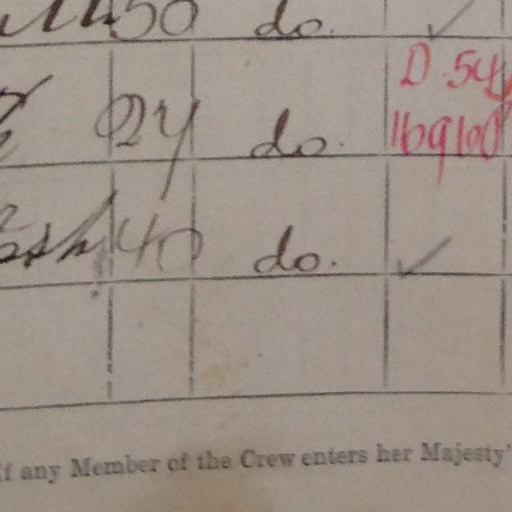 50 do.
D.54
24 do. 169100
40 do.
If any Member of the Crew enters her Majesty'